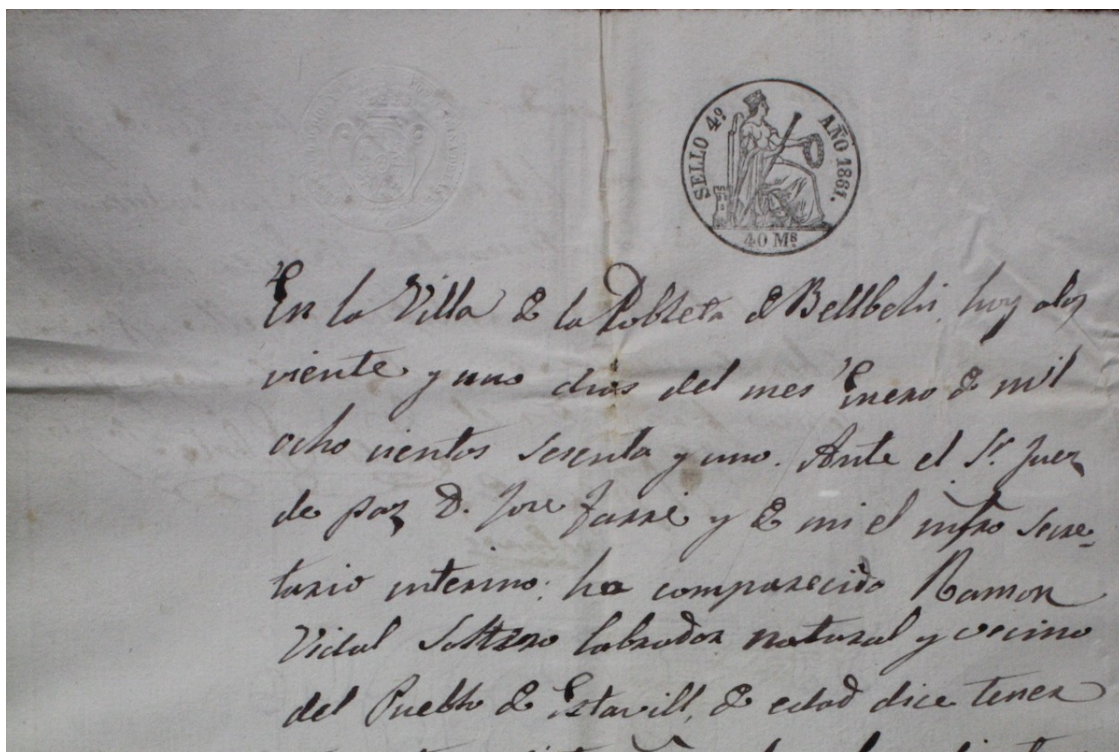 SELLO 4º AÑO 1861.
40 Mˢ
En la Villa de la Pobleta de Bellbehi, hoy a los
viente y uno dias del mes Enero de mil
ocho cientos sesenta y uno. Ante el Sr. Juez
de paz D. Jose Farré y de mi el infro Secre-
tario interino: ha comparecido Ramon
Vidal Soltero labrador natural y vecino
del Pueblo de Estavill, de edad dice tener